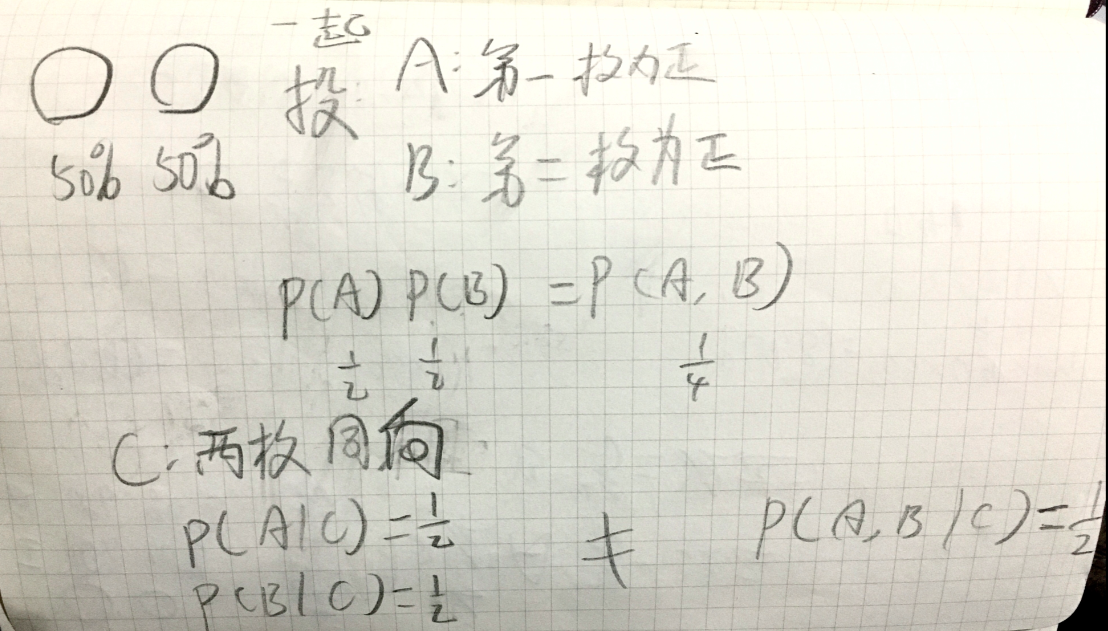 一起
投: A: 第一枚为正
50% 50% B: 第二枚为正
P(A) P(B) = P(A, B)
1/2 1/2 1/4
C: 两枚同向
P(A|C) = 1/2 ≠ P(A, B|C) = 1/2
P(B|C) = 1/2